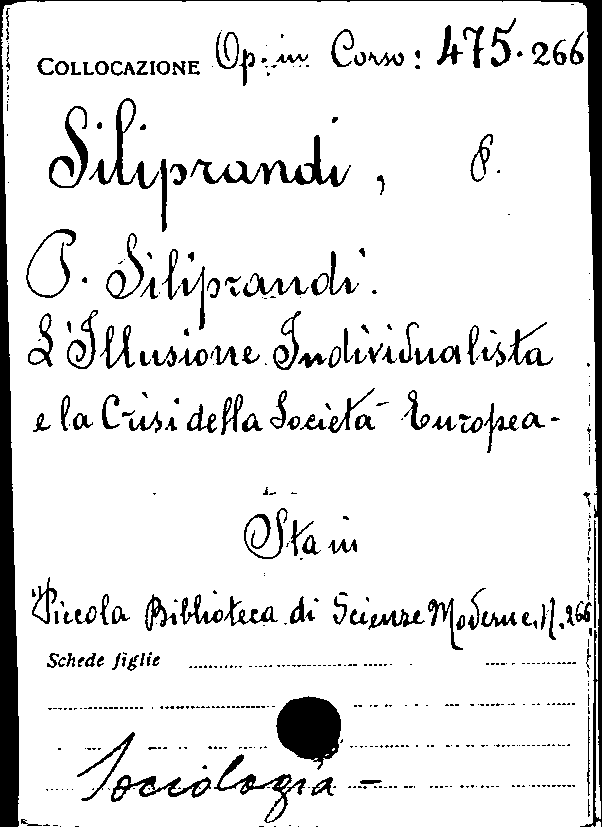 COLLOCAZIONE Op. in Corso: 475.266
Siliprandi, P.
P. Siliprandi.
L'Illusione Individualista
e la Crisi della Società Europea-
Sta in
"Piccola Biblioteca di Scienze Moderne. N. 266
Schede figlie
Sociologia -